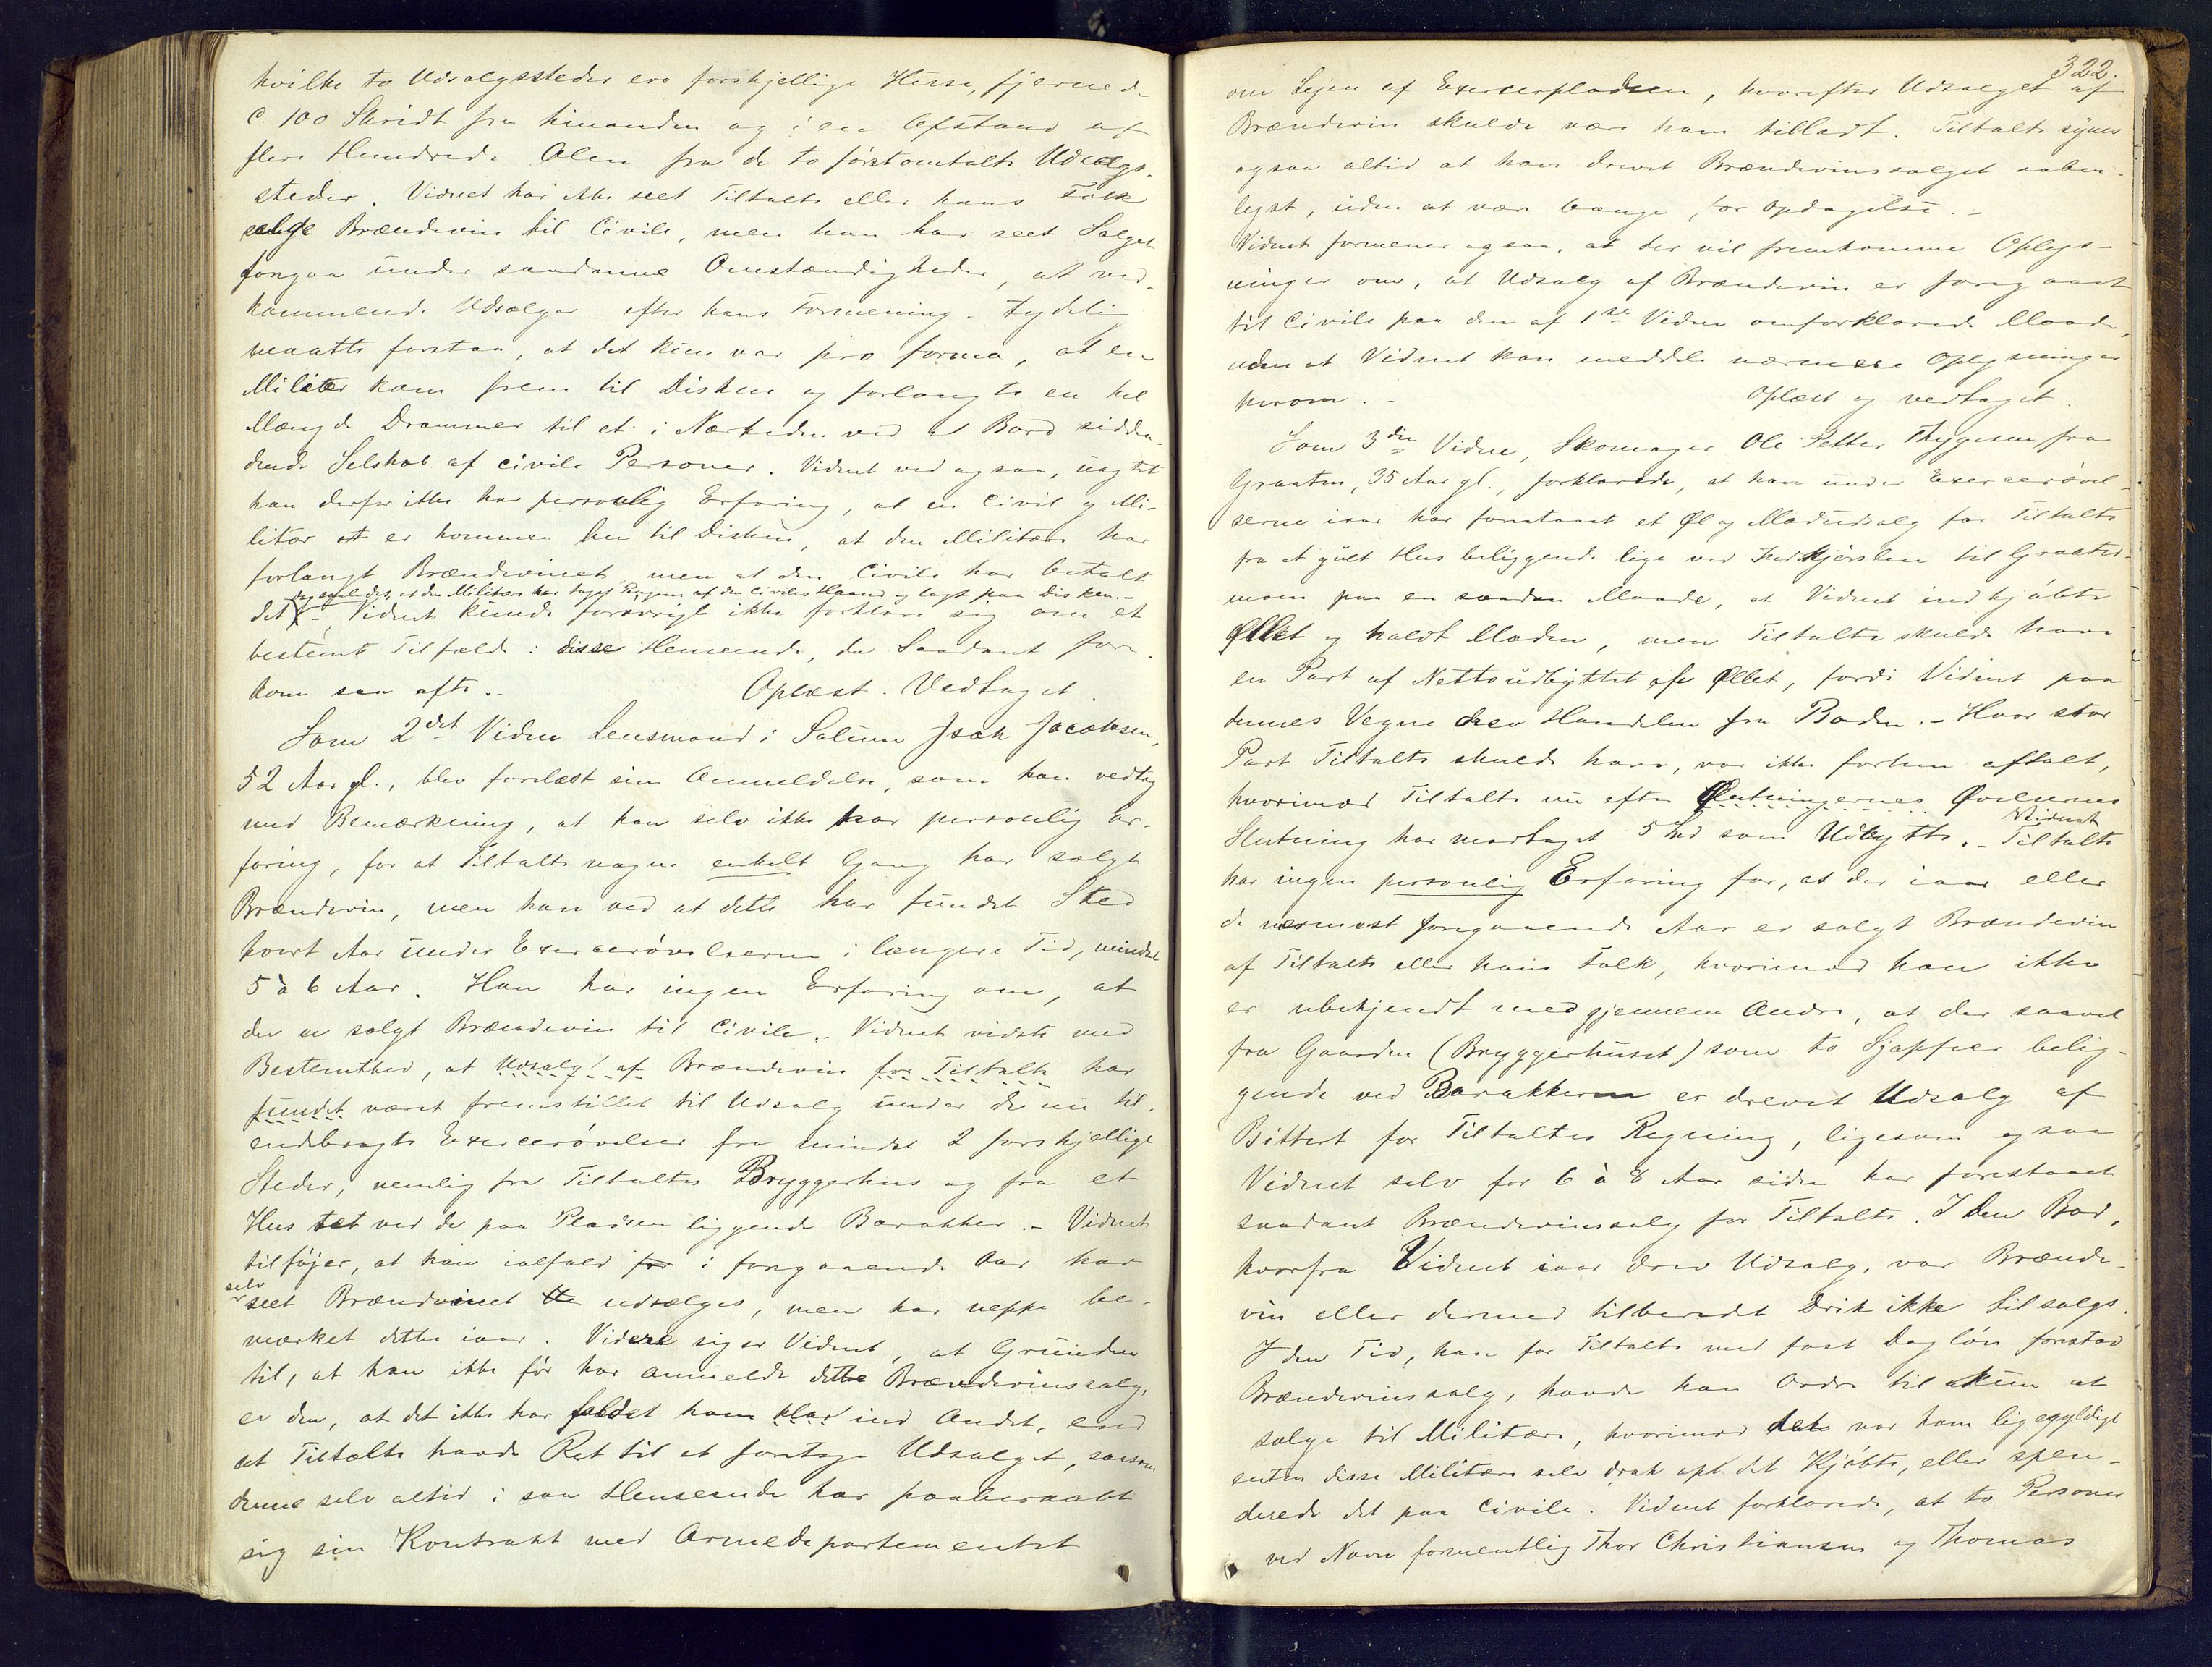 hvilke to Udsalgssteder ere forskjellige Huse, fjernede
c. 100 Skridt fra hinanden og i en Afstand af
flere Hundrede Alen fra de to førstomtalte Udsalgs-
steder. Vidnet har ikke seet Tiltalte eller hans Folk
sælge Brændevin til Civile, men han har seet Salget
foregaa under saadanne Omstændigheder, at ved-
kommende Udsælger - efter hans Formening - tydelig
maatte forstaa, at det kun var pro forma, at en
Militær kom frem til Disken og forlangte en hel
Mængde Drammer til et i Nærheden ved et Bord sidden-
dende Selskab af civile Personer. Vidnet ved ogsaa, uagtet
han derfor ikke har personlig Erfaring, at en Civil og Mi-
litær at er kommen hen til Disken, at den Militære har
forlangt Brændevinet, men at den Civile har betalt
og saaledes, at den Militær har taget Pengene af den Civiles Haand og lagt paa Disken. -
det - Vidnet kunde forøvrigt ikke forklare sig om et
bestemt Tilfælde i disse Henseende, da Saadant fore-
kom saa ofte. - Oplæst. Vedtaget.
Som 2det Vidne Lensmand i Solum Isak Jacobsen,
52 Aar gl., blev forelæst sin Anmeldelse, som han vedtog
med Bemærkning, at han selv ikke har personlig Er-
faring, for at Tiltalte nogen enkelt Gang har solgt
Brændevin, men han ved at dette har fundet Sted
hvert Aar under Exercerøvelserne i længere Tid, mindst
5 à 6 Aar. Han har ingen Erfaring om, at
der er solgt Brændevin til Civile. - Vidnet vidste med
Bestemthed, at Udsalg af Brændevin for Tiltalte har
fundet været fremstillet til Udsalg under de nu til-
endebragte Exercerøvelser fra mindst 2 forskjellige
Steder, nemlig fra Tiltaltes Bryggerhus og fra et
Hus tæt ved de paa Pladsen liggende Barakker. - Vidnet
tilføjer, at han ialfald for i foregaaende Aar har
selv
seet Brændevinet udsælges, men har neppe be-
mærket dette iaar. Videre siger Vidnet, at Grunden
til, at han ikke før har anmeldt dette Brændevinssalg,
er den, at det ikke har faldet ham ind Andet, end
at Tiltalte havde Ret til at foretage Udsalget, saasom
denne selv altid i saa Henseende har paaberaabt
sig sin Kontrakt med Armedepartementet
322.
om Lejen af Exercerpladsen, hvorefter Udsalget af
Brændevin skulde være ham tilladt. Tiltalte synes
ogsaa altid at have drevet Brændevinssalget aaben-
lyst, uden at være bange for Opdagelse. -
Vidnet formener ogsaa, at der vil fremkomme Oplys-
ninger om, at Udsalg af Brændevin er foregaaet
til Civile paa den af 1ste Vidne omforklarede Maade,
uden at Vidnet kan meddele nærmere Oplysninger
herom. - Oplæst og vedtaget.
Som 3die Vidne, Skomager Ole Petter Thygesen fra
Graaten, 35 Aar gl., forklarede, at han under Exercerøvel-
serne iaar har forestaaet et Øl og Madudsalg for Tiltalte
fra et gult Hus beliggende lige ved Indkjørslen til Graaten-
moen paa en saadan Maade, at Vidnet indkjøbte
Øllet og holdt Maden, men Tiltalte skulde have
en Part af Nettoudbyttet af Øllet, fordi Vidnet paa
dennes Vegne drev Handelen fra Boden. - Hvor stor
Part Tiltalte skulde have, var ikke forhen aftalt,
hvorimod Tiltalte nu efter Øvelsernes
Vidnet
Slutning har modtaget 5 som Udbytte. - Tiltalte
har ingen personlig Erfaring for, at der iaar eller
de nærmest foregaaende Aar er solgt Brændevin
af Tiltalte eller hans Folk, hvorimod han ikke
er ubekjendt med gjennem Andre, at der saavel
fra Gaarden (Bryggerhuset) som to Sjapper belig-
gende ved Barakkerne er drevet Udsalg af
Bittert for Tiltaltes Regning, ligesom ogsaa
Vidnet selv for 6 à 8 Aar siden har forestaaet
saadant Brændevinssalg for Tiltalte. I den Bod,
hvorfra Vidnet iaar drev Udsalg, var Brænde-
vin eller dermed tilberedt Drik ikke tilsalgs.
I den Tid, han for Tiltalte med fast Dagløn forestod
Brændevinssalg, havde han Ordre til kun at
sælge til Militære, hvorimod det var ham ligegyldigt
enten disse Militære selv drak op det Kjøbte, eller spen-
derede det paa Civile. Vidnet forklarede, at to Personer
ved Navn formentlig Thor Christiansen og Thomas